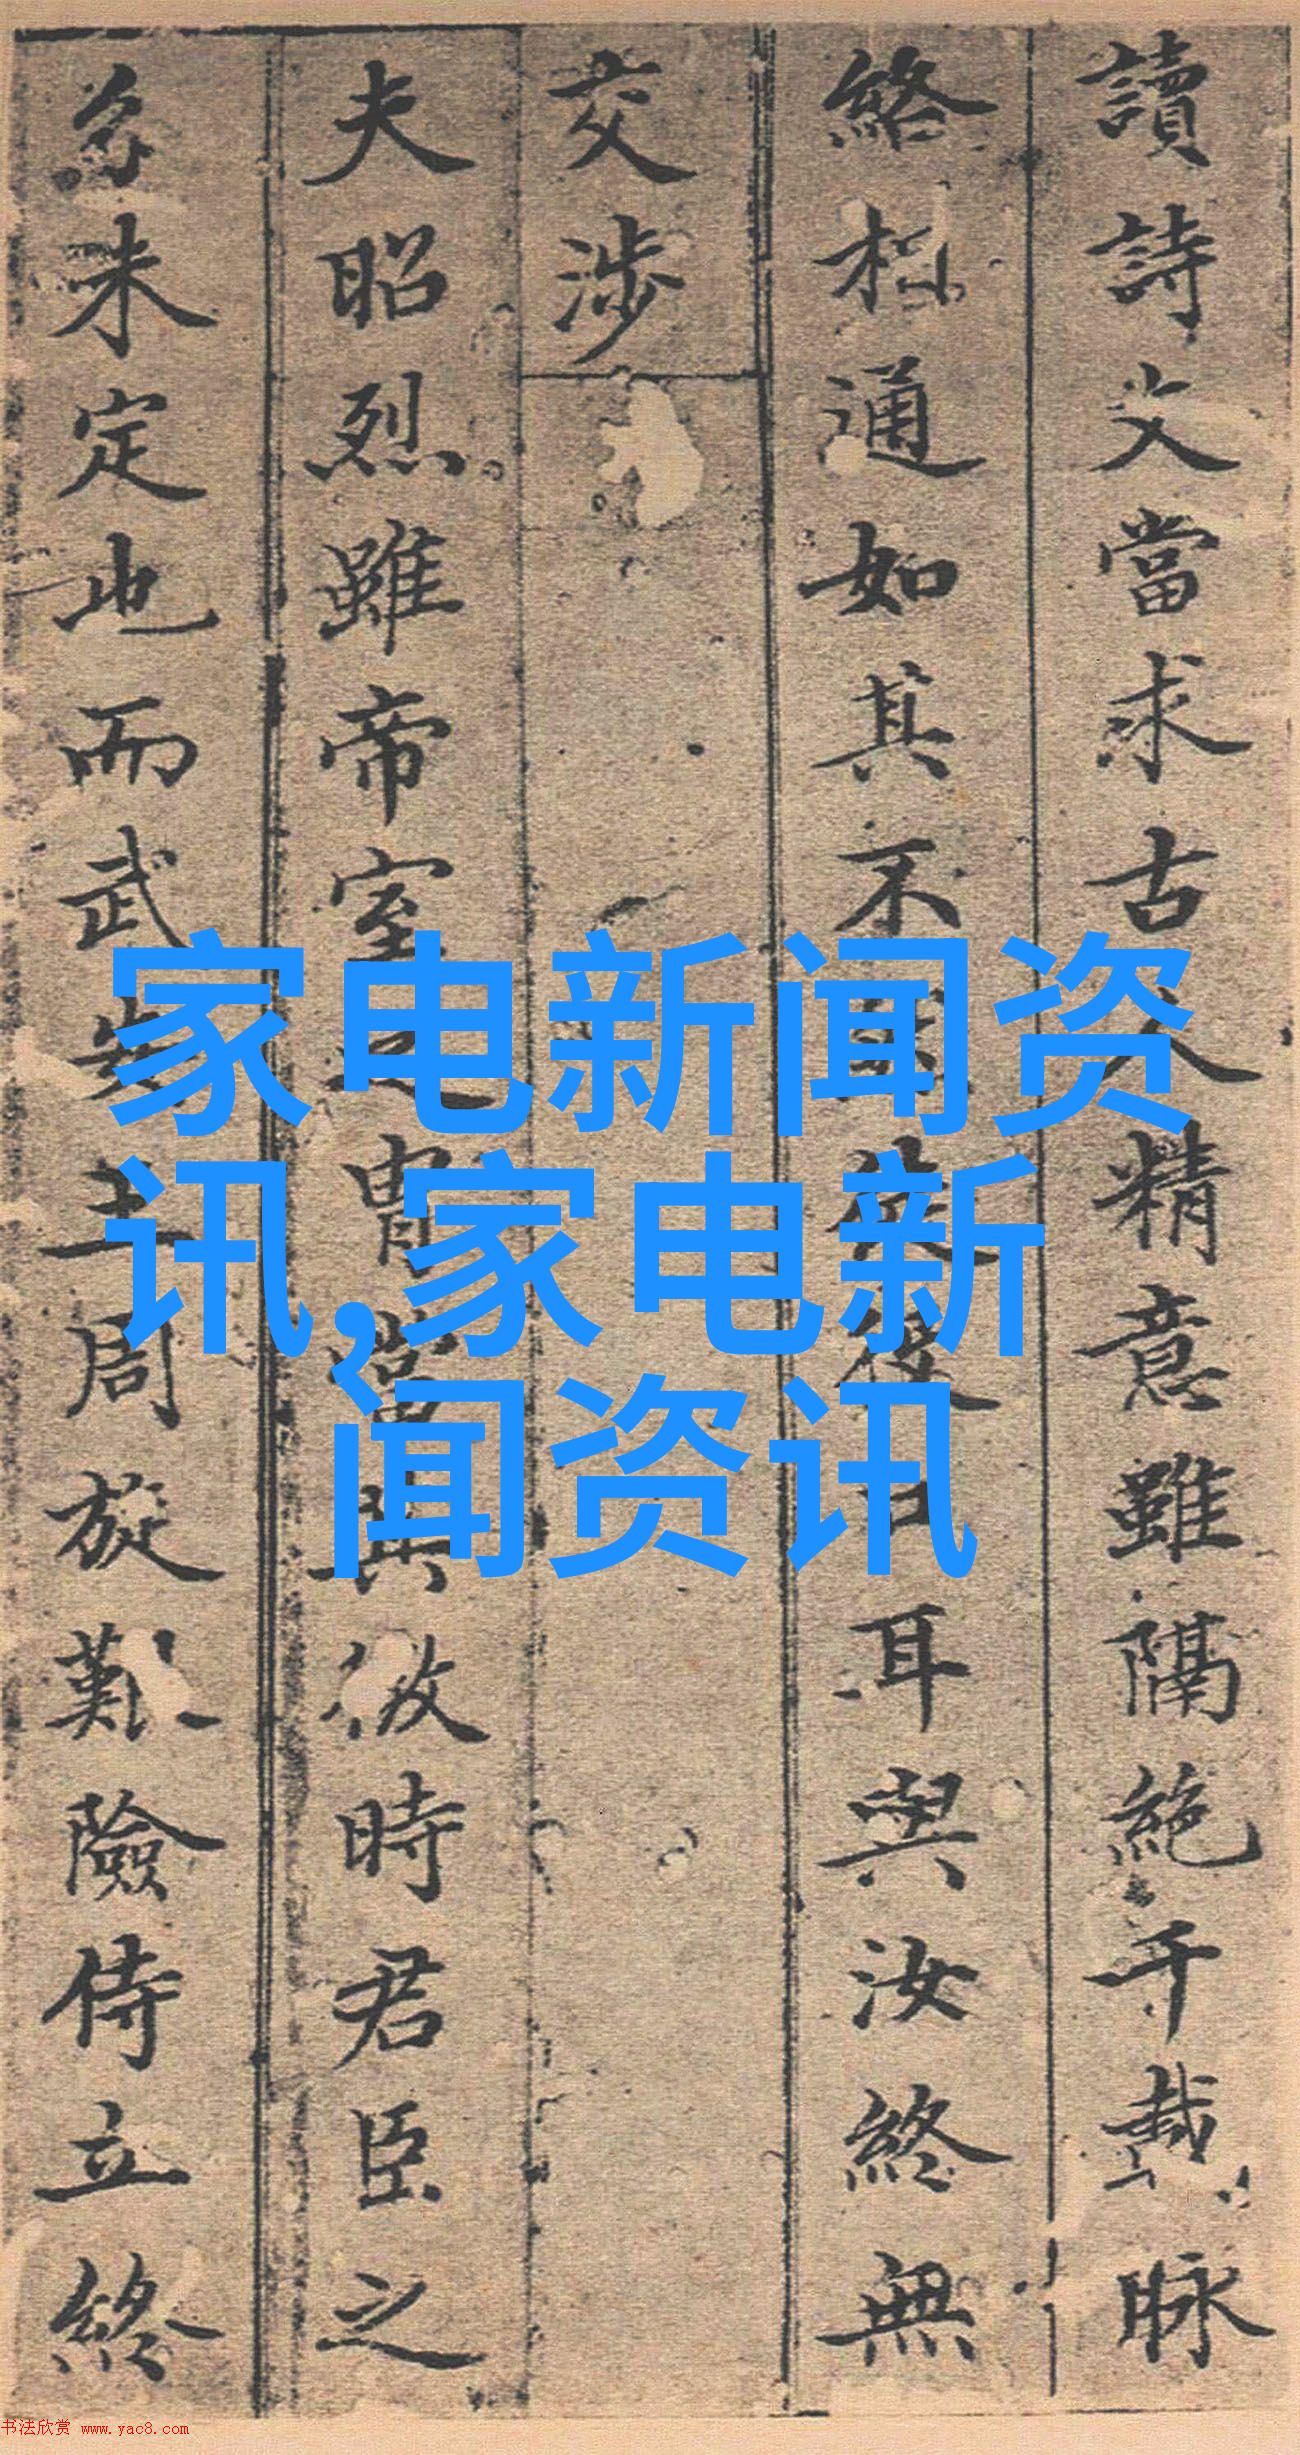 讀詩文當求古人精意雖隔絶千載脉
絡相通如其不耳與汝終無
交涉
夫昭烈雖帝室之胄時君臣之
未定也而武安王周旋艱險侍立終
家电新闻资
讯,家电新
闻资讯
书法欣赏 www.yac8.com